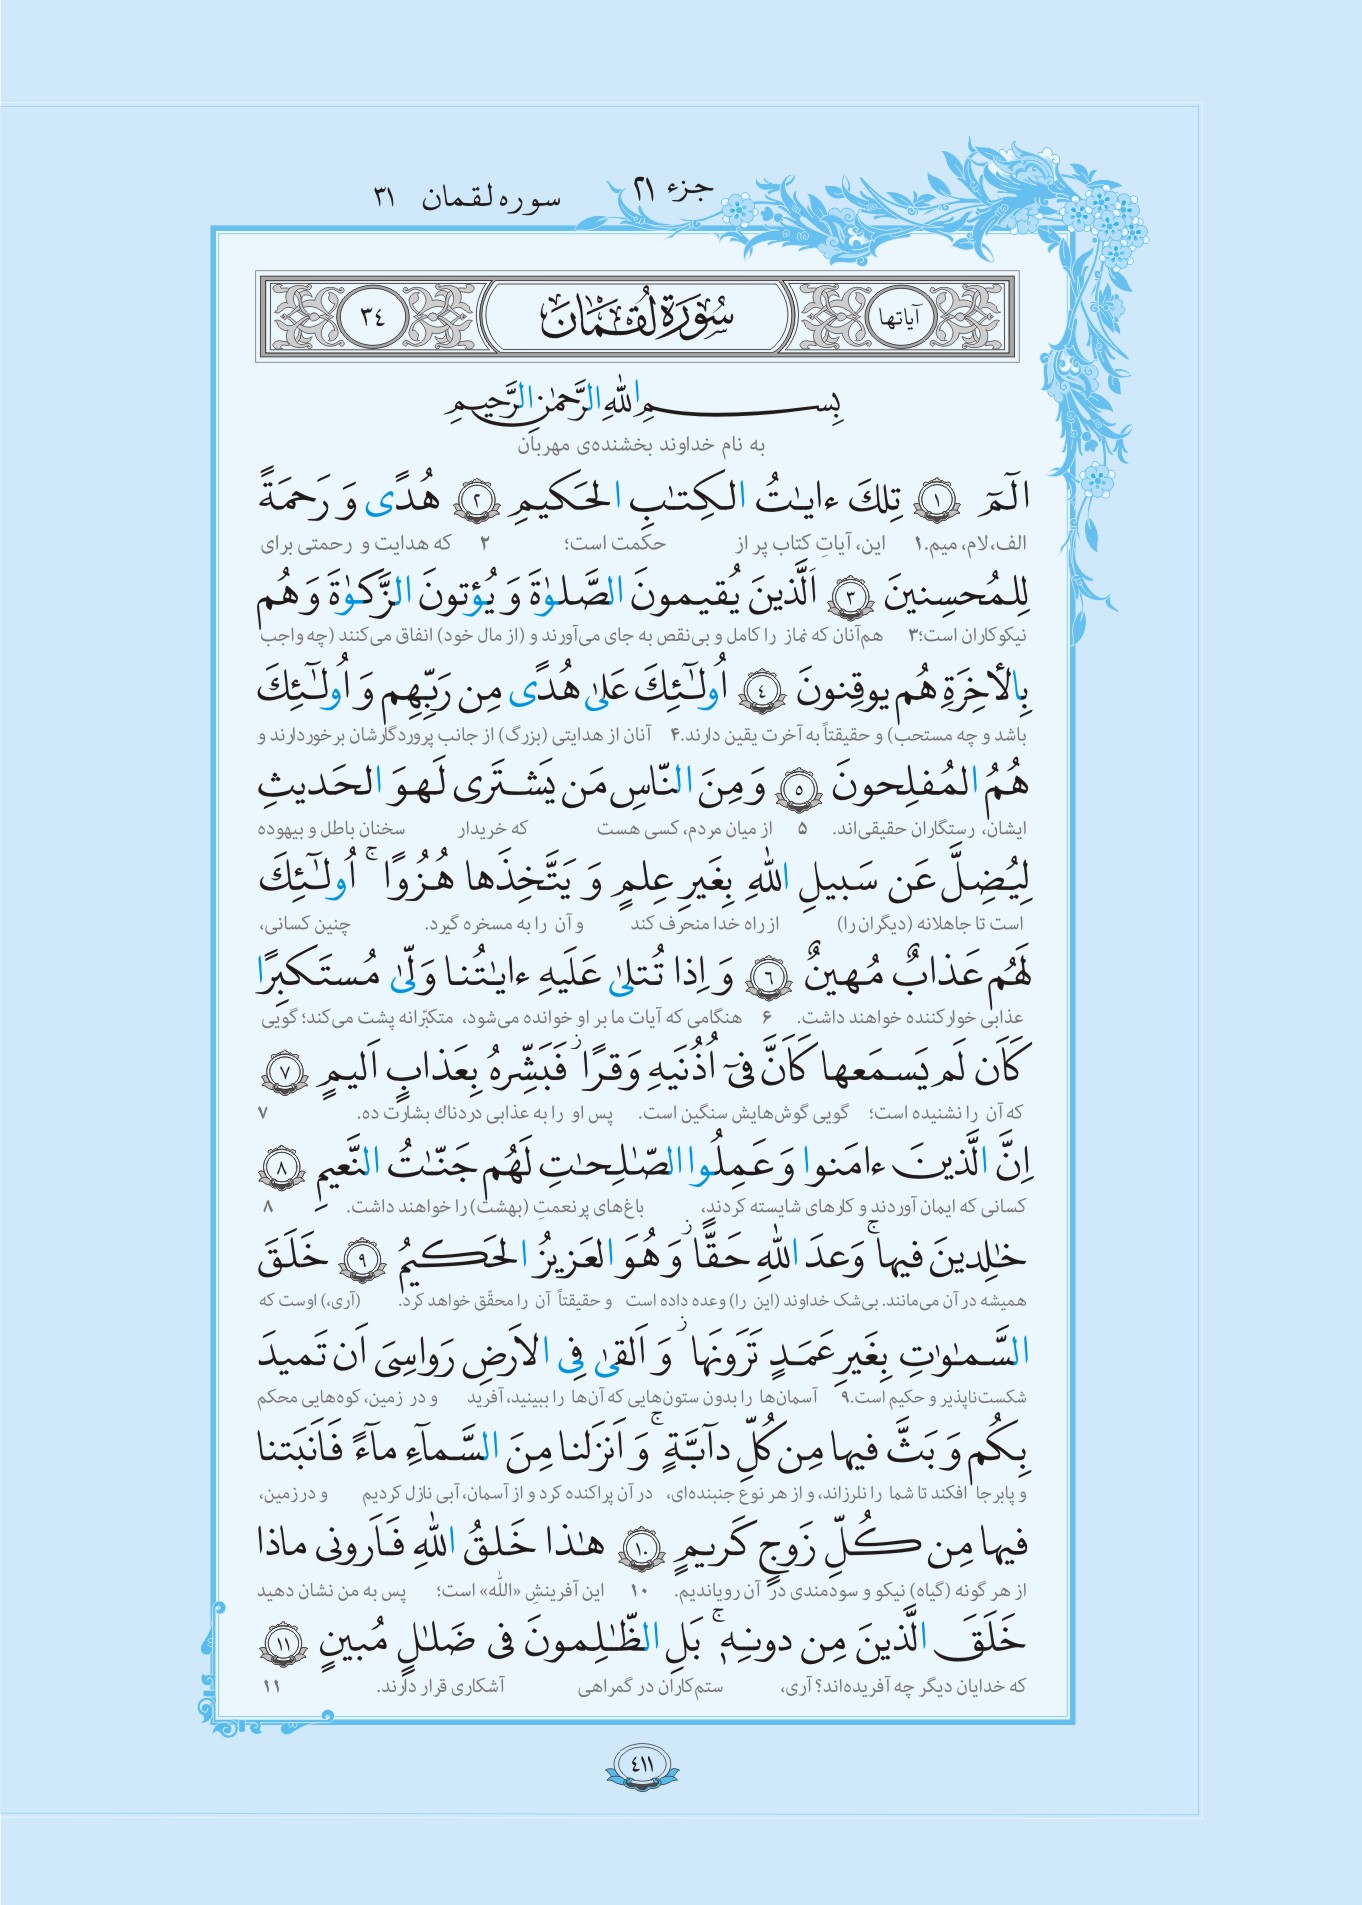 جزء ۲۱ سوره لقمان ۳۱
آیاتها سُورَة لُقمَان ٣٤
بِسمِ اللّٰهِ الرَّحمٰنِ الرَّحیمِ
به نام خداوند بخشنده‌ی مهربان
الٓمٓ ١ تِلكَ ءایٰتُ الكِتٰبِ الحَكیمِ ٢ هُدًی وَ رَحمَةً
الف، لام، میم.۱ این، آیاتِ کتاب پر از حکمت است؛ ۲ که هدایت و رحمتی برای
لِلمُحسِنینَ ٣ اَلَّذینَ یُقیمونَ الصَّلوٰةَ وَ یُؤتونَ الزَّكوٰةَ وَ هُم
نیکوکاران است؛۳ هم‌آنان که نماز را کامل و بی‌نقص به جای می‌آورند و (از مال خود) انفاق می‌کنند (چه واجب
بِالأخِرَةِ هُم یوقِنونَ ٤ اُولٰٓئِكَ عَلیٰ هُدًی مِن رَبِّهِم وَ اُولٰٓئِكَ
باشد و چه مستحب) و حقیقتاً به آخرت یقین دارند.۴ آنان از هدایتی (بزرگ) از جانب پروردگارشان برخوردارند و
هُمُ المُفلِحونَ ٥ وَ مِنَ النّاسِ مَن یَشتَری لَهوَ الحَدیثِ
ایشان، رستگاران حقیقی‌اند. ۵ از میان مردم، کسی هست که خریدار سخنان باطل و بیهوده
لِیُضِلَّ عَن سَبیلِ اللّٰهِ بِغَیرِ عِلمٍ وَ یَتَّخِذَها هُزُوًا ۚ اُولٰٓئِكَ
است تا جاهلانه (دیگران را) از راه خدا منحرف کند و آن را به مسخره گیرد. چنین کسانی،
لَهُم عَذابٌ مُهینٌ ٦ وَ اِذا تُتلیٰ عَلَیهِ ءایٰتُنا وَلّیٰ مُستَكبِرًا
عذابی خوارکننده خواهند داشت. ۶ هنگامی که آیات ما بر او خوانده می‌شود، متکبّرانه پشت می‌کند؛ گویی
كَاَن لَم یَسمَعها كَاَنَّ فیٓ اُذُنَیهِ وَقرًا ز فَبَشِّرهُ بِعَذابٍ اَلیمٍ ٧
که آن را نشنیده است؛ گویی گوش‌هایش سنگین است. پس او را به عذابی دردناك بشارت ده. ۷
اِنَّ الَّذینَ ءامَنوا وَ عَمِلُوا الصّٰلِحٰتِ لَهُم جَنّٰتُ النَّعیمِ ٨
کسانی که ایمان آوردند و کارهای شایسته کردند، باغ‌های پرنعمتِ (بهشت) را خواهند داشت. ۸
خٰلِدینَ فیها ۚ وَعدَ اللّٰهِ حَقًّا ز وَ هُوَ العَزیزُ الحَكیمُ ٩ خَلَقَ
همیشه در آن می‌مانند. بی‌شک خداوند (این را) وعده داده است و حقیقتاً آن را محقّق خواهد کرد. (آری،) اوست که
السَّمٰوٰتِ بِغَیرِ عَمَدٍ تَرَونَها ز وَ اَلقیٰ فِی الاَرضِ رَواسِیَ اَن تَمیدَ
شکست‌ناپذیر و حکیم است.۹ آسمان‌ها را بدون ستون‌هایی که آن‌ها را ببینید، آفرید و در زمین، کوه‌هایی محکم
بِكُم وَ بَثَّ فیها مِن كُلِّ دآبَّةٍ ۚ وَ اَنزَلنا مِنَ السَّمآءِ مآءً فَاَنبَتنا
و پابرجا افکند تا شما را نلرزاند، و از هر نوع جنبنده‌ای، در آن پراکنده کرد و از آسمان، آبی نازل کردیم و در زمین،
فیها مِن كُلِّ زَوجٍ كَریمٍ ١٠ هٰذا خَلقُ اللّٰهِ فَاَرونی ماذا
از هر گونه (گیاه) نیکو و سودمندی در آن رویاندیم. ۱۰ این آفرینشِ «اللّٰه» است؛ پس به من نشان دهید
خَلَقَ الَّذینَ مِن دونِهٖ ۚ بَلِ الظّٰلِمونَ فی ضَلٰلٍ مُبینٍ ١١
که خدایان دیگر چه آفریده‌اند؟ آری، ستم‌کاران در گمراهی آشکاری قرار دارند. ۱۱
٤١١